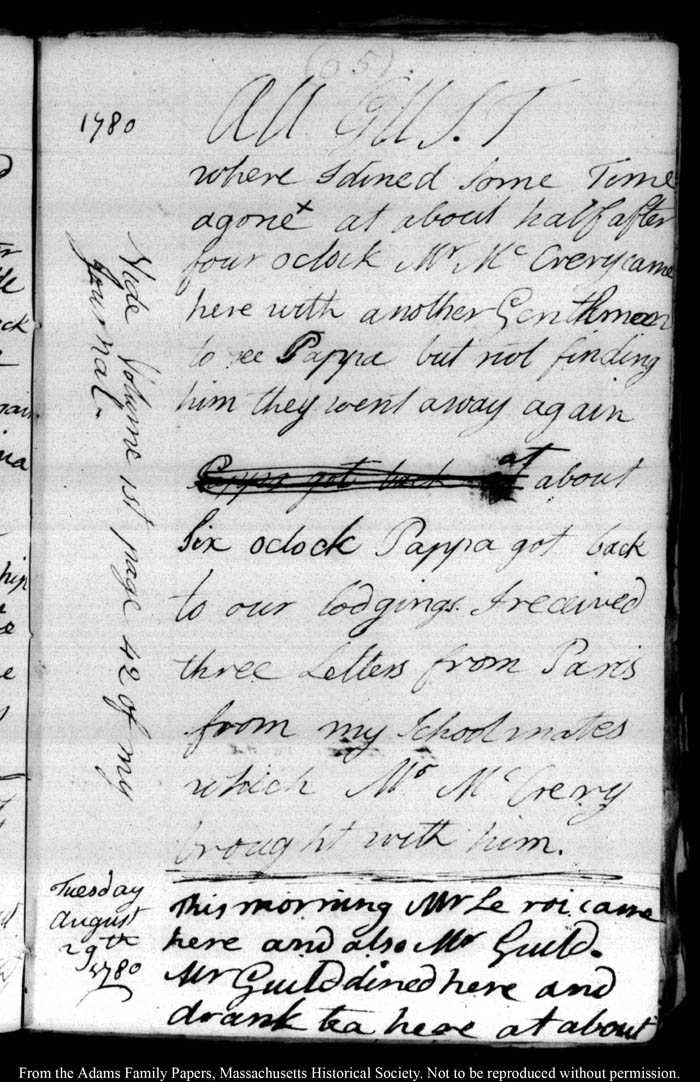 (65)
1780
AUGUST
where I dined some Time
agone x at about half after
four oclock Mr. Mc Crery came
here with another Gentleman
to see Pappa but not finding
him they went away again
Pappa got back at about
Six oclock Pappa got back
to our lodgings. I received
three Letters from Paris
from my School mates
which Mr Mc Crery
brought with him.
Vide Volume 1st page 42 of my
Journal.
Tuesday
August
29th
1780
This morning Mr Le roi came
here and also Mr Guild.
Mr Guild dined here and
drank tea here at about
From the Adams Family Papers, Massachusetts Historical Society. Not to be reproduced without permission.